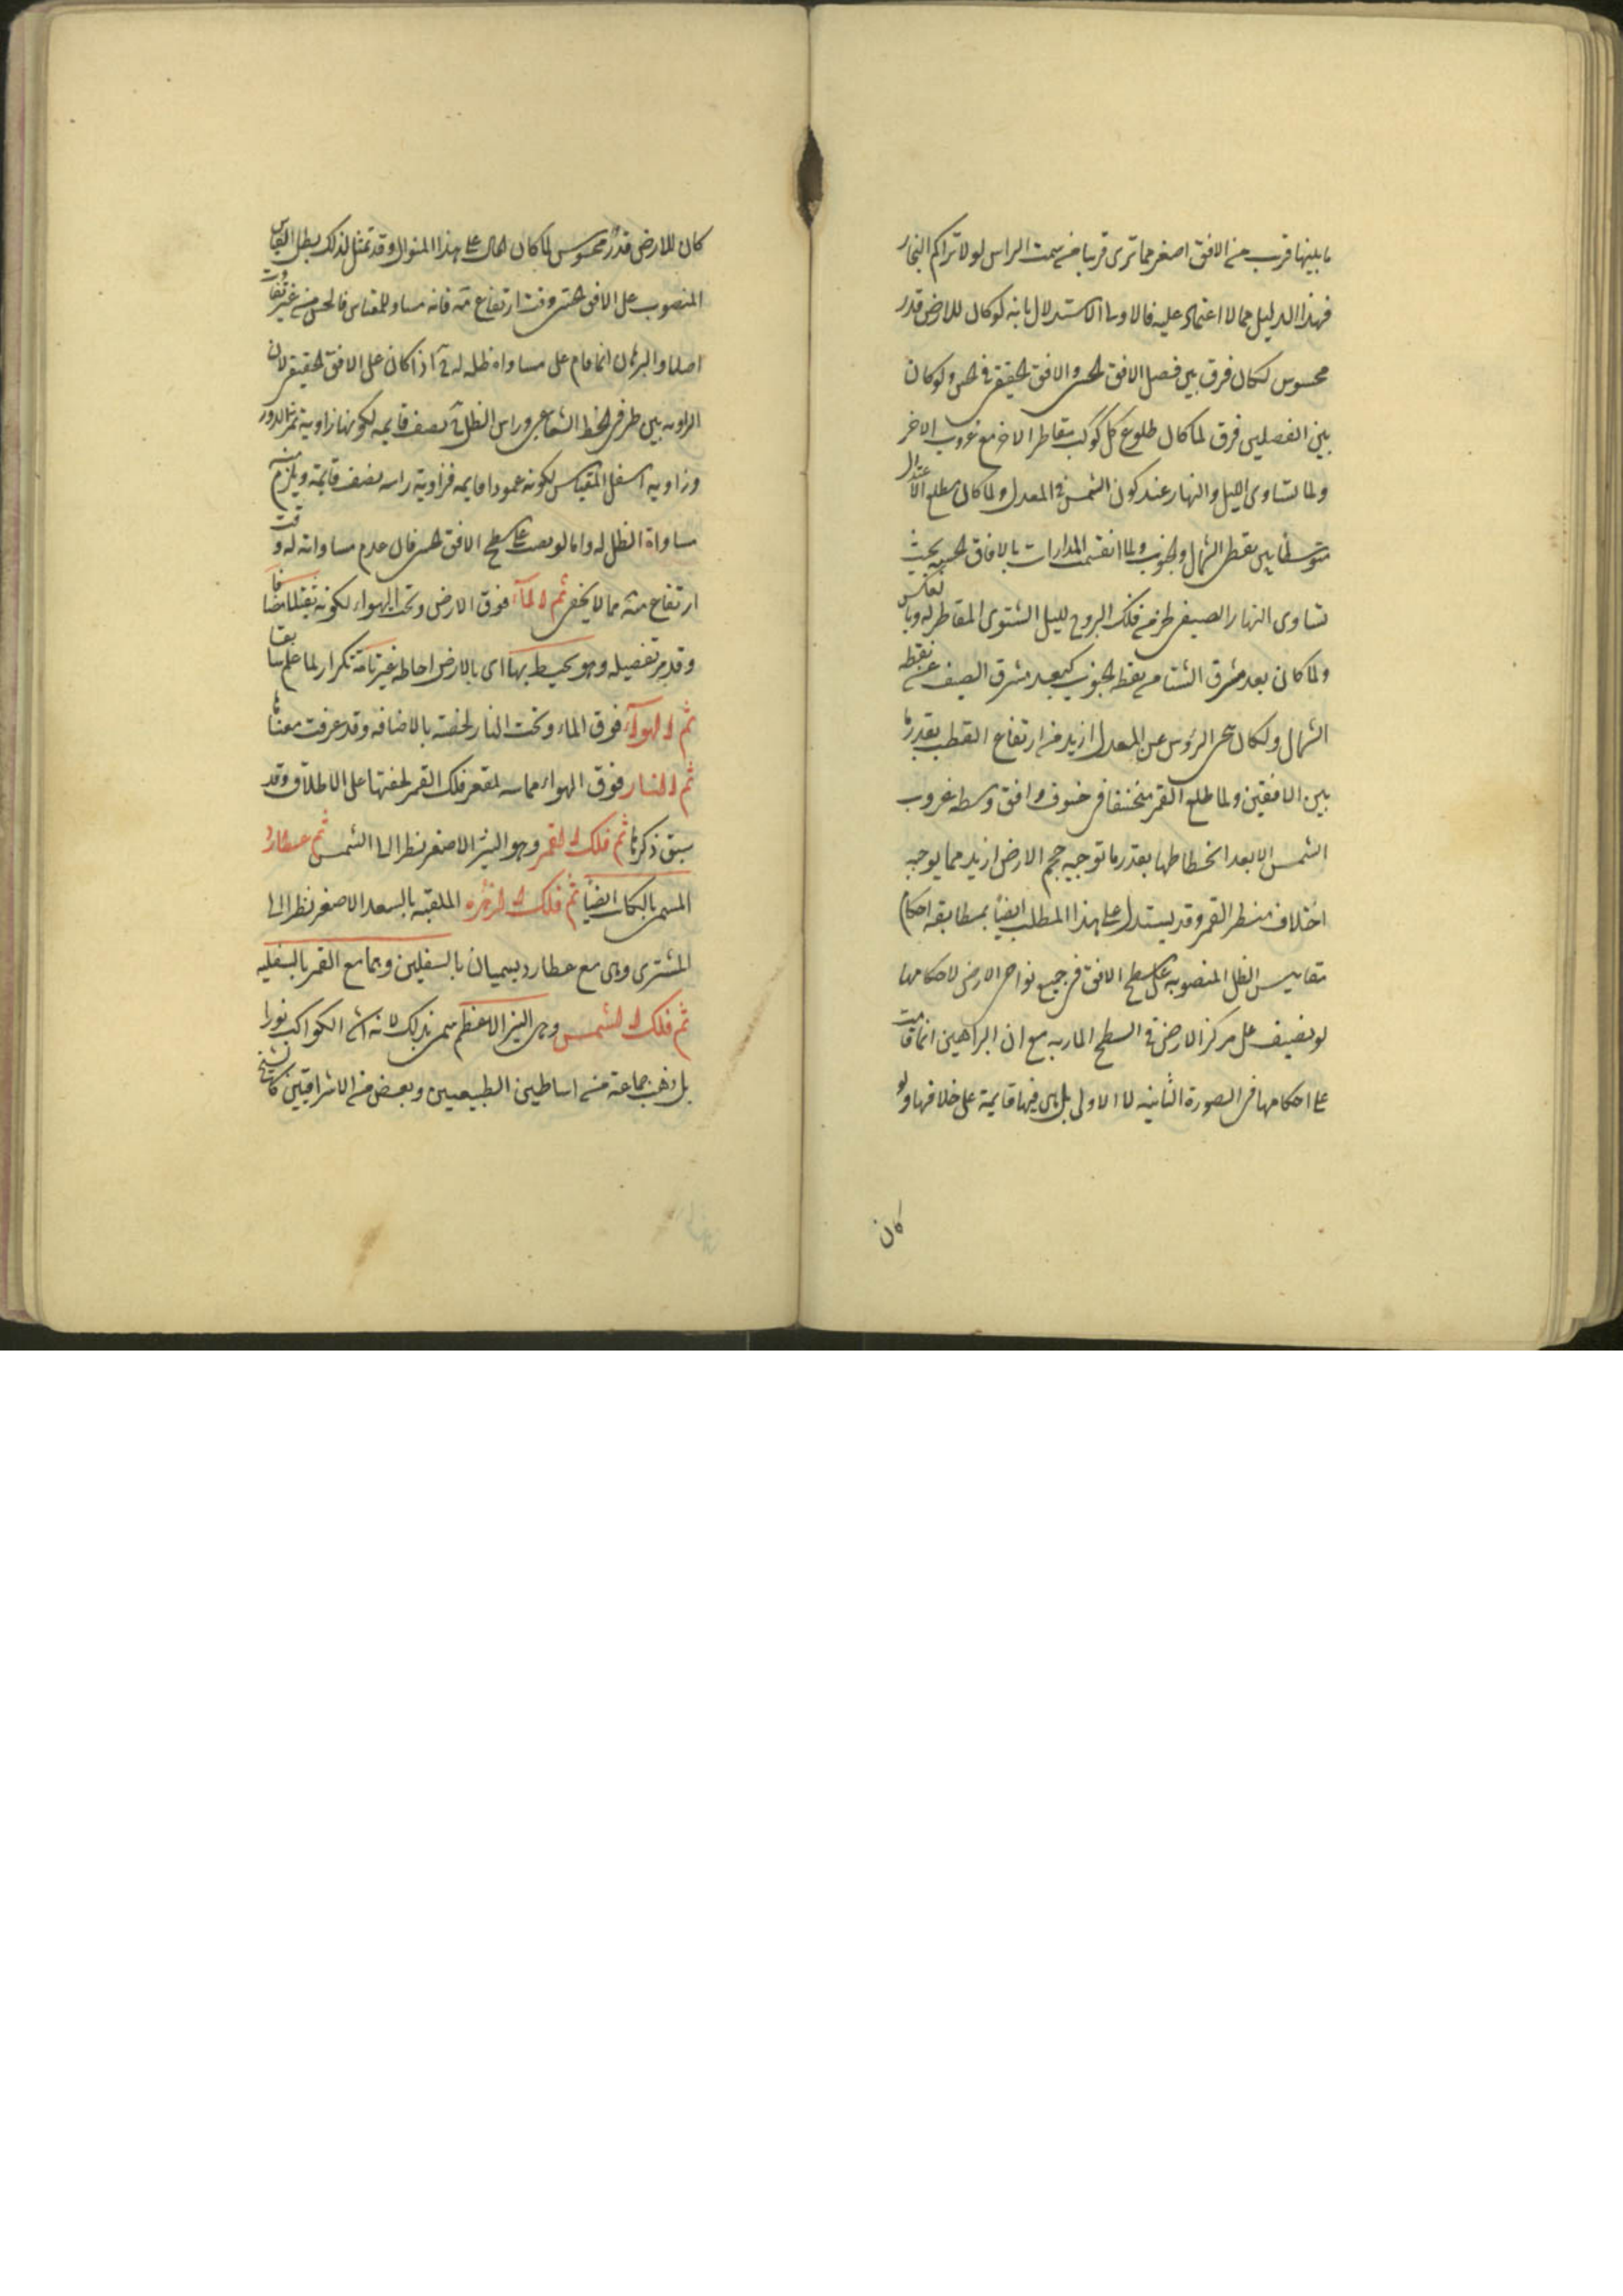 ما بينها قرب من الافق اصغر مما ترى قريبا من سمت الراس لولا تراكم البخار
فهذا الدليل مما لا اعتماد عليه فالاولى الاستدلال بانه لو كان للارض قدر
محسوس لكان فرق بين فصل الافق الحسى والافق الحقيقى فى الحس ولو كان
بين الفصلين فرق لما كان طلوع كل كوكب بتقاطر الاخر مع غروب الاخر
ولما تساوى الليل والنهار عند كون الشمس فى المعدل ولما كان مطلع الاعتدال
متوسطا بين نقطتى الشمال والجنوب ولما انقسمت المدارات بالافاق الحسيه بحيث
تساوى النهار الصيفى لجزء من فلك البروج لليل الشتوى المقاطر له وبالعكس
ولما كان بعد مشرق الشتا من نقطه الجنوب كبعد مشرق الصيف عن نقطه
الشمال ولكان سمت الرؤس عن المعدل ازيد من ارتفاع القطب بقدر ما
بين الافقين ولما طلع القمر منخسفا فى خسوف وافق وسطه غروب
الشمس الا بعد انحطاطها بقدر ما توجبه حجم الارض ازيد مما يوجبه
اختلاف منظر القمر وقد يستدل على هذا المطلب ايضا بمطابقه احكام
مقاييس الظل المنصوبه على سطح الافق فى جميع نواحى الارض لاحكامها
لو نصبت على مركز الارض فى السطح المار به مع ان البراهين انما قامت
على احكامها فى الصورة الثانيه لا الاولى بل هى فيها قايمة على خلافها ولو
كان
كان للارض قدر محسوس لما كان الحال على هذا المنوال وقد تمثل لذلك بظل المقياس
المنصوب على الافق الحسى وقت ارتفاع مه فانه مساو للمقياس فى الحس من غير تفاوت
اصلا والبرهان انما قام على مساواه ظله له اذا كان على الافق الحقيقى لان
الزاويه بين طرفى الخط الشعاعى وراس الظل نصف قايمه لكونها زاوية ثمن الدور
وزاويه اسفل المقياس لكونه عمودا قايمه فزاوية راسه نصف قايمة ويلزم منه
مساواة الظل له واما لو نصب على سطح الافق الحسى فان عدم مساواته له وقت
ارتفاع مه مما لا يخفى ثم الماء فوق الارض وتحت الهواء لكونه ثقيلا مضافا
وقد مر تفصيله وهو يحيط بها اى بالارض احاطه غير تامة تكرار لما علم سابقا
ثم الهواء فوق الماء وتحت النار لخفته بالاضافه وقد عرفت معناها
ثم النار فوق الهواء مماسه لمقعر فلك القمر لخفتها على الاطلاق وقد
سبق ذكرها ثم فلك القمر وهو النير الاصغر نظرا الى الشمس ثم عطارد
المسمى بالكاتب ايضا ثم فلك الزهره الملقبه بالسعد الاصغر نظرا الى
المشترى وهى مع عطارد يسميان بالسفليين وهما مع القمر بالسفليه
ثم فلك الشمس وهى النير الاعظم سمى بذلك لانه اشد الكواكب نورا
بل ذهب جماعة من اساطين الطبيعيين وبعض من الاشراقيين كالشيخ